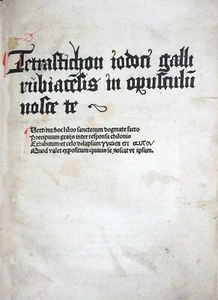 Tetrastichon iodoci galli
rubiacēsis in opusculū
nosce te
Vertitur hoc libro sanctorum dogmate facto
Precipuum graijs inter responsa chilonis
Exhibitum et celo delapsum γνωθι σε αυτον
Quod valet expositum quauis se noscat vt ipsum.